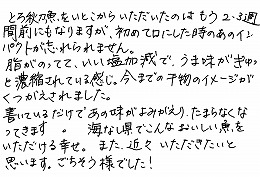 とろ秋刀魚をいとこからいただいたのはもう2、3週
間前にもなりますが、初めて口にした時のあのイン
パクトが忘れられません。
脂がのってて、いい塩加減で、うま味がぎゅっ
と濃縮されている感じ。今までの干物のイメージがく
つがえされました。
書いているだけであの味がよみがえり、たまらなくな
ってきます。海なし県でこんなおいしい魚を
いただける幸せ。また、近々いただきたいと
思います。ごちそう様でした!